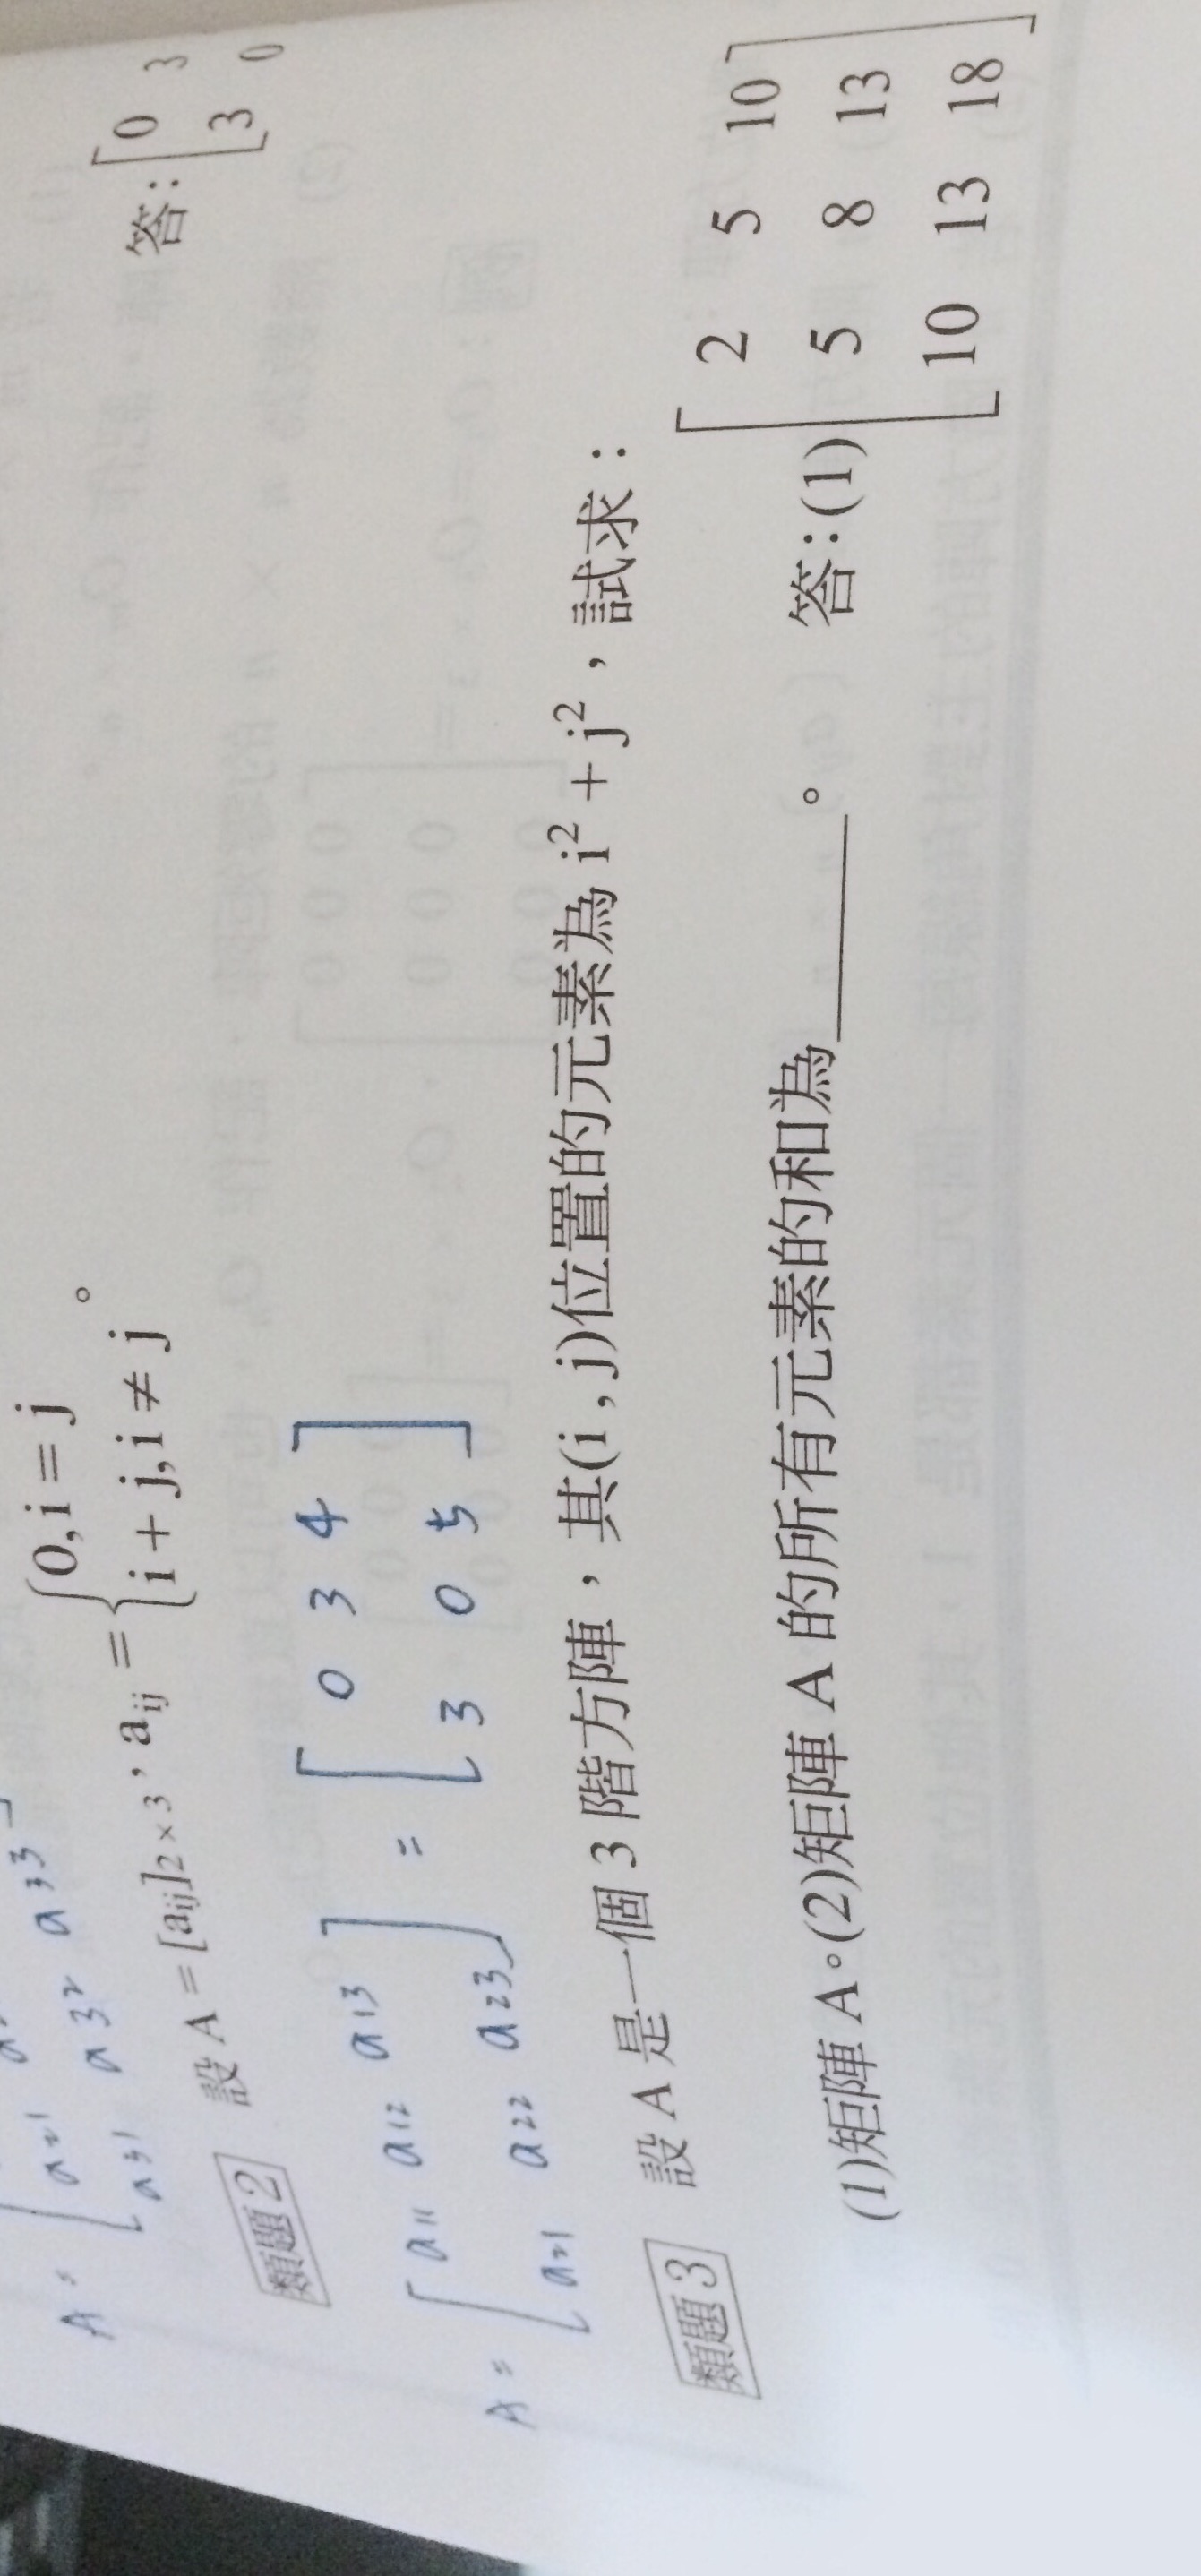 A = [ a21
a31 a32 a33
{ 0, i = j
類題2 設 A = [aij]2×3, aij = { i + j, i ≠ j 。 答: [ 0 3
3 0
A = [ a11 a12 a13 ] = [ 0 3 4 ]
a21 a22 a23 3 0 5
類題3 設 A 是一個 3 階方陣,其(i , j)位置的元素為 i² + j²,試求:
(1)矩陣 A。(2)矩陣 A 的所有元素的和為______。 答:(1) [ 2 5 10 ]
5 8 13
10 13 18